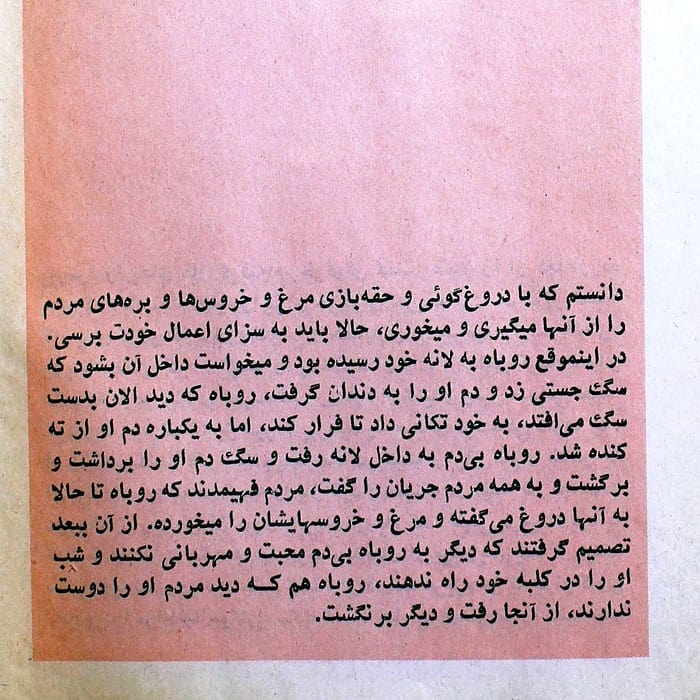 دانستم که با دروغ‌گوئی و حقه‌بازی مرغ و خروس‌ها و بره‌های مردم
را از آنها میگیری و میخوری، حالا باید به سزای اعمال خودت برسی.
در اینموقع روباه به لانه خود رسیده بود و میخواست داخل آن بشود که
سگ جستی زد و دم او را به دندان گرفت، روباه که دید الان بدست
سگ می‌افتد، به خود تکانی داد تا فرار کند، اما به یکباره دم او از ته
کنده شد. روباه بی‌دم به داخل لانه رفت و سگ دم او را برداشت و
برگشت و به همه مردم جریان را گفت، مردم فهیمدند که روباه تا حالا
به آنها دروغ می‌گفته و مرغ و خروسهایشان را میخورده. از آن ببعد
تصمیم گرفتند که دیگر به روباه بی‌دم محبت و مهربانی نکنند و شب
او را در کلبه خود راه ندهند، روباه هم که دید مردم او را دوست
ندارند، از آنجا رفت و دیگر برنگشت.